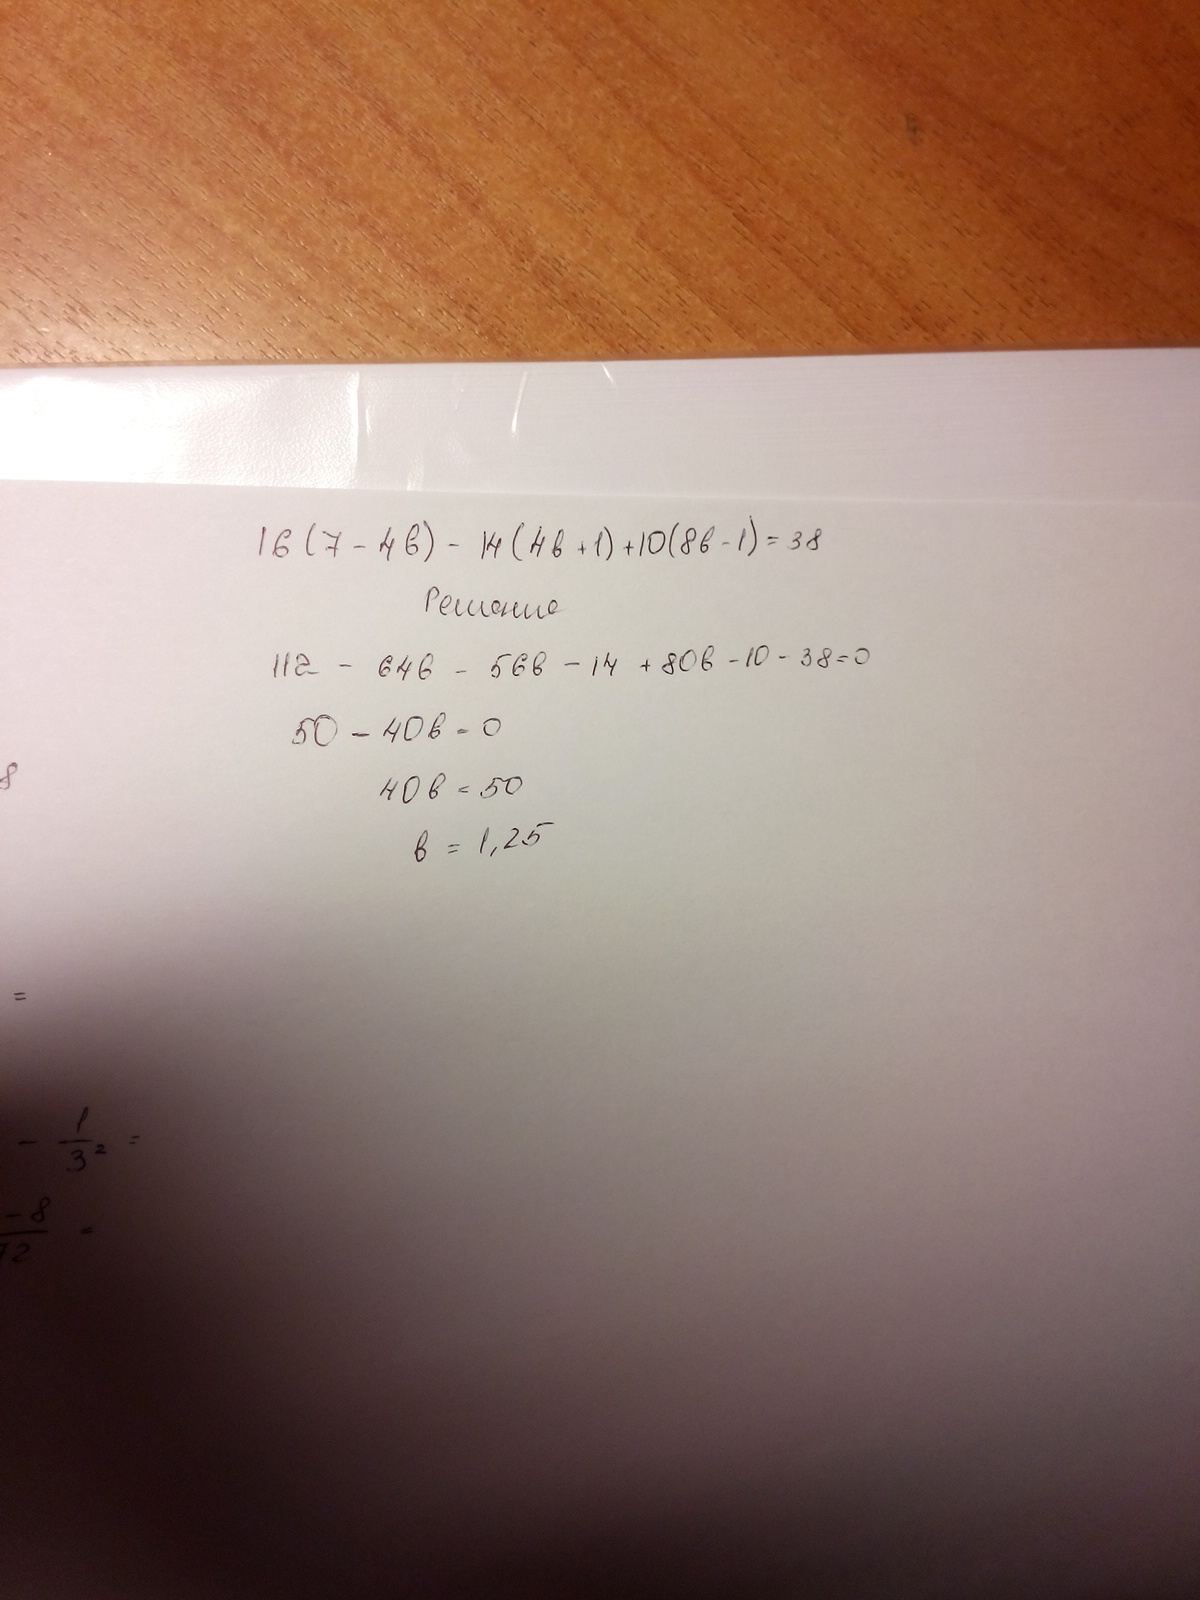 16(7-4в) - 14(4в+1)+10(8в-1)=38
Решение
112 - 64в - 56в - 14 + 80в - 10 - 38=0
50 - 40в = 0
40в = 50
в = 1,25
8
=
- 1/3² =
-8/72 =